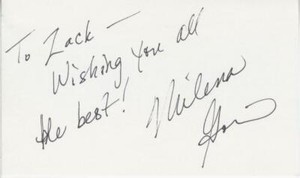 To Zack —
Wishing you all
the best! Milena